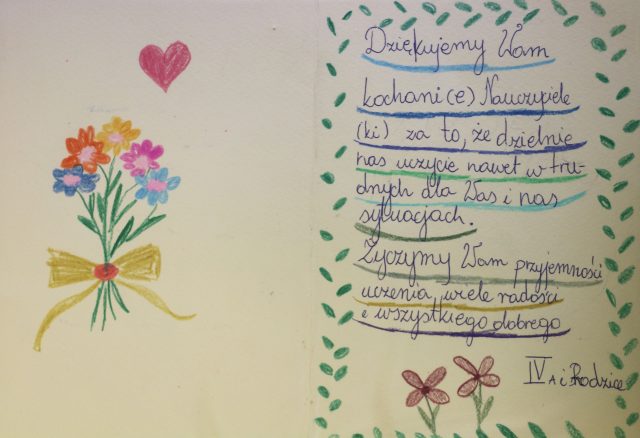 Dziękujemy Wam
kochani(e) Nauczyciele
(ki) za to, że dzielnie
nas uczycie nawet w tru-
dnych dla Was i nas
sytuacjach.
Życzymy Wam przyjemności
uczenia, wiele radości
i wszystkiego dobrego
IV A i Rodzice